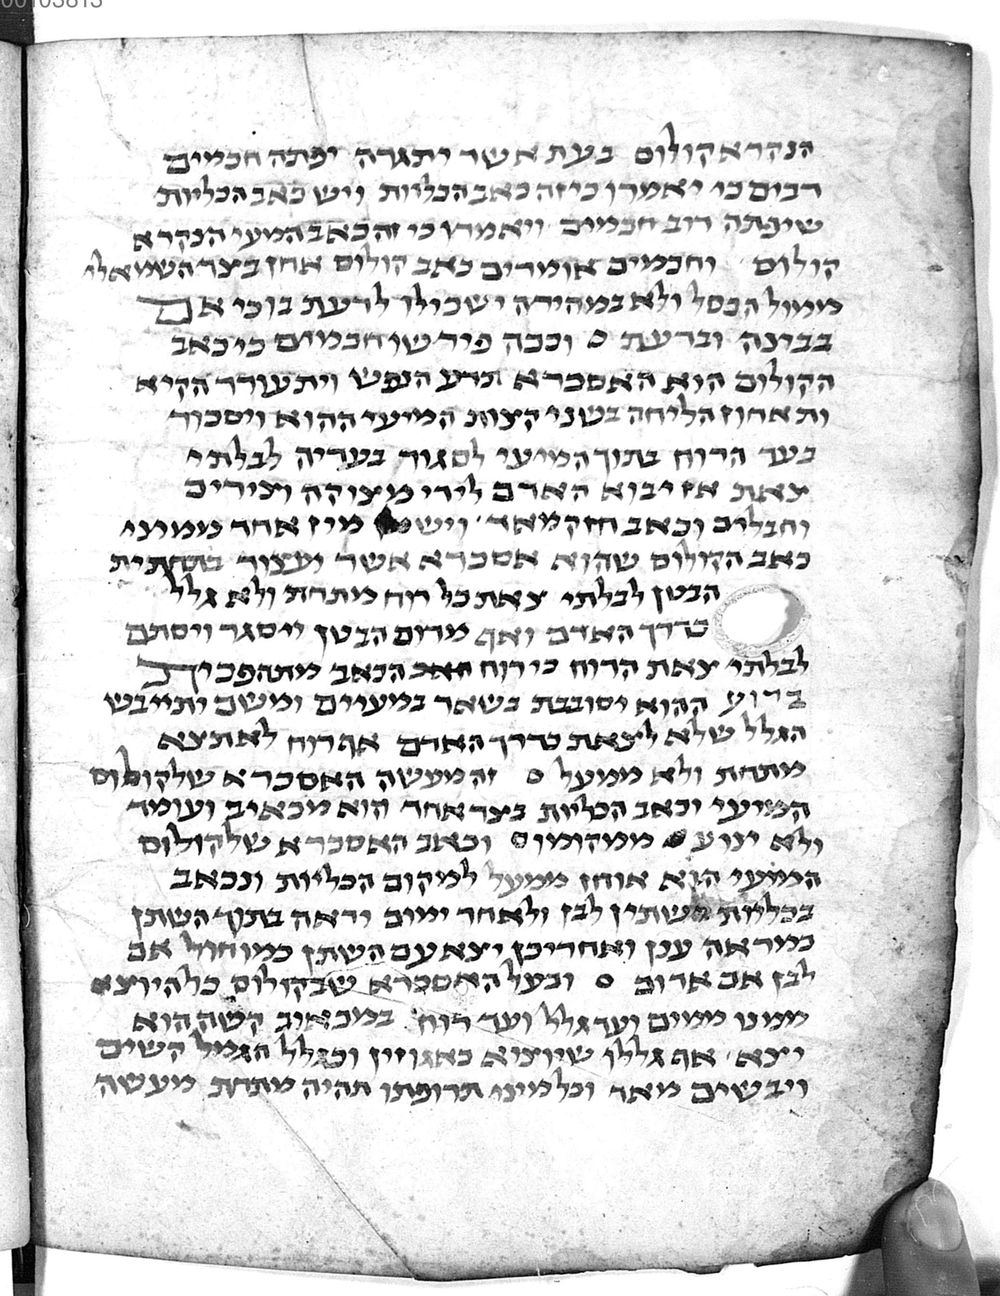 הנקרא קולום בעת אשר יתגרה יפתה חכמים
רבים כי יאמרו כי זה כאב הכליות ויש כאב הכליות
שיפתה רוב חכמים ויאמרו כי זה כאב המעי הנקרא
קולום וחכמים אומרים כאב קולום אחז בצד השמאלי
ממול הכסל ולא במהירה ישכילו לדעת בו כי אם
בבינה ובדעת וככה פירשו חכמים כי כאב
הקולום הוא האסכרא תרע הנפש ויתעורר הקיא
ותאחוז הליחה בשני קצות המיעי ההוא ויסכור
בעד הרוח בתוך המיעי לסגור בעדיה לבלתי
צאת אז יבוא האדם לידי מצוקה וצירים
וחבלים וכאב חזק מאד ויש מין אחר ממיני
כאב הקולום שהוא אסכרא אשר יעצור בתחתית
הבטן לבלתי צאת כל רוח מתחת ולא גלל
כדרך האדם ואף מרום הבטן ייסגר ויסתם
לבלתי צאת הרוח כי רוח הכאב מתהפכיך
ברוע ההוא יסובבת בשאר במעיים ומשם יתייבש
הגלל שלא ליצאת כדרך האדם אף רוח לא תצא
מתחת ולא ממעל זה מעשה האסכרא שלקולוס
המיעי וכאב הכליות בצד אחד הוא מכאיב ועומד
ולא ינוע ממקומו וכאב האסכרא שלקולוס
המיעי הוא אוחז ממעל למקום הכליות ונכאב
בכליות השתין לבן ולאחר ימים יראה בתוך השתן
כמראה ענן ואחריכן יצא עם השתן כמו חול אם
לבן אם אדום ובעל האסכרא שבקולוס כל היוצא
ממנו ממים ועד גלל ועד רוח במכאוב קשה הוא
יצא אף גללו שיוציא כאגוזין וכגלל הגמל קשים
ויבשים מאד וכל מיני תרופתו תהיה מתחת מעשה